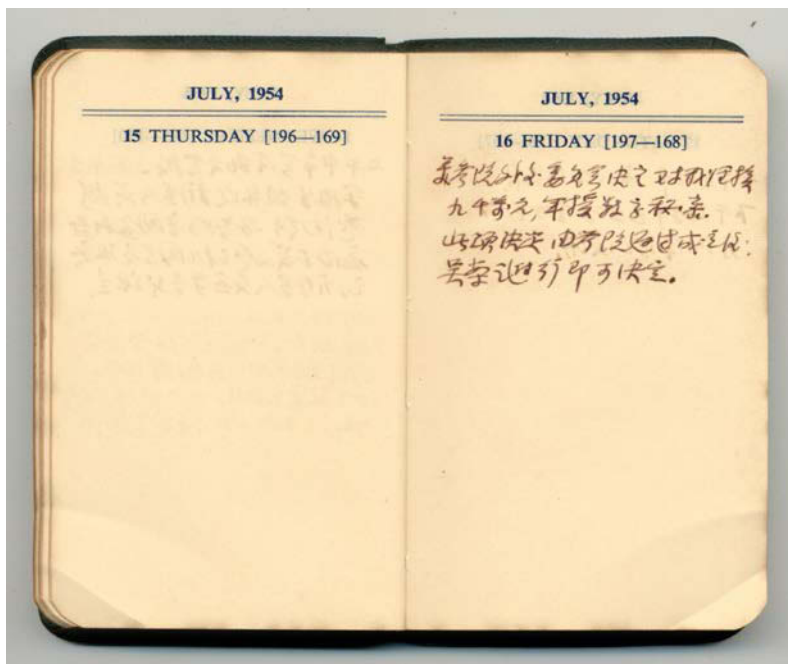 JULY, 1954
15 THURSDAY [196—169]
JULY, 1954
16 FRIDAY [197—168]
美参院外交委員会决定对我经援
九千万元,军援数字秘密.
此项法案由参院通过成立后.
即可决定。